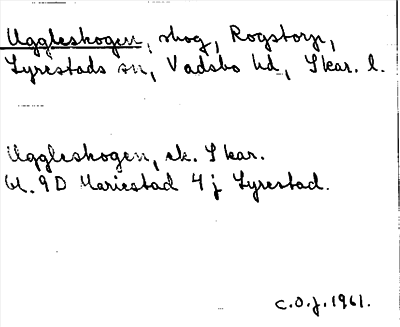 Uggleskogen, skog, Rogstorp,
Lyrestads sn, Vadsbo hd, Skar. l.
Uggleskogen, ek. Skar.
bl. 9 D Mariestad 4 j Lyrestad.
C.O.J. 1961.